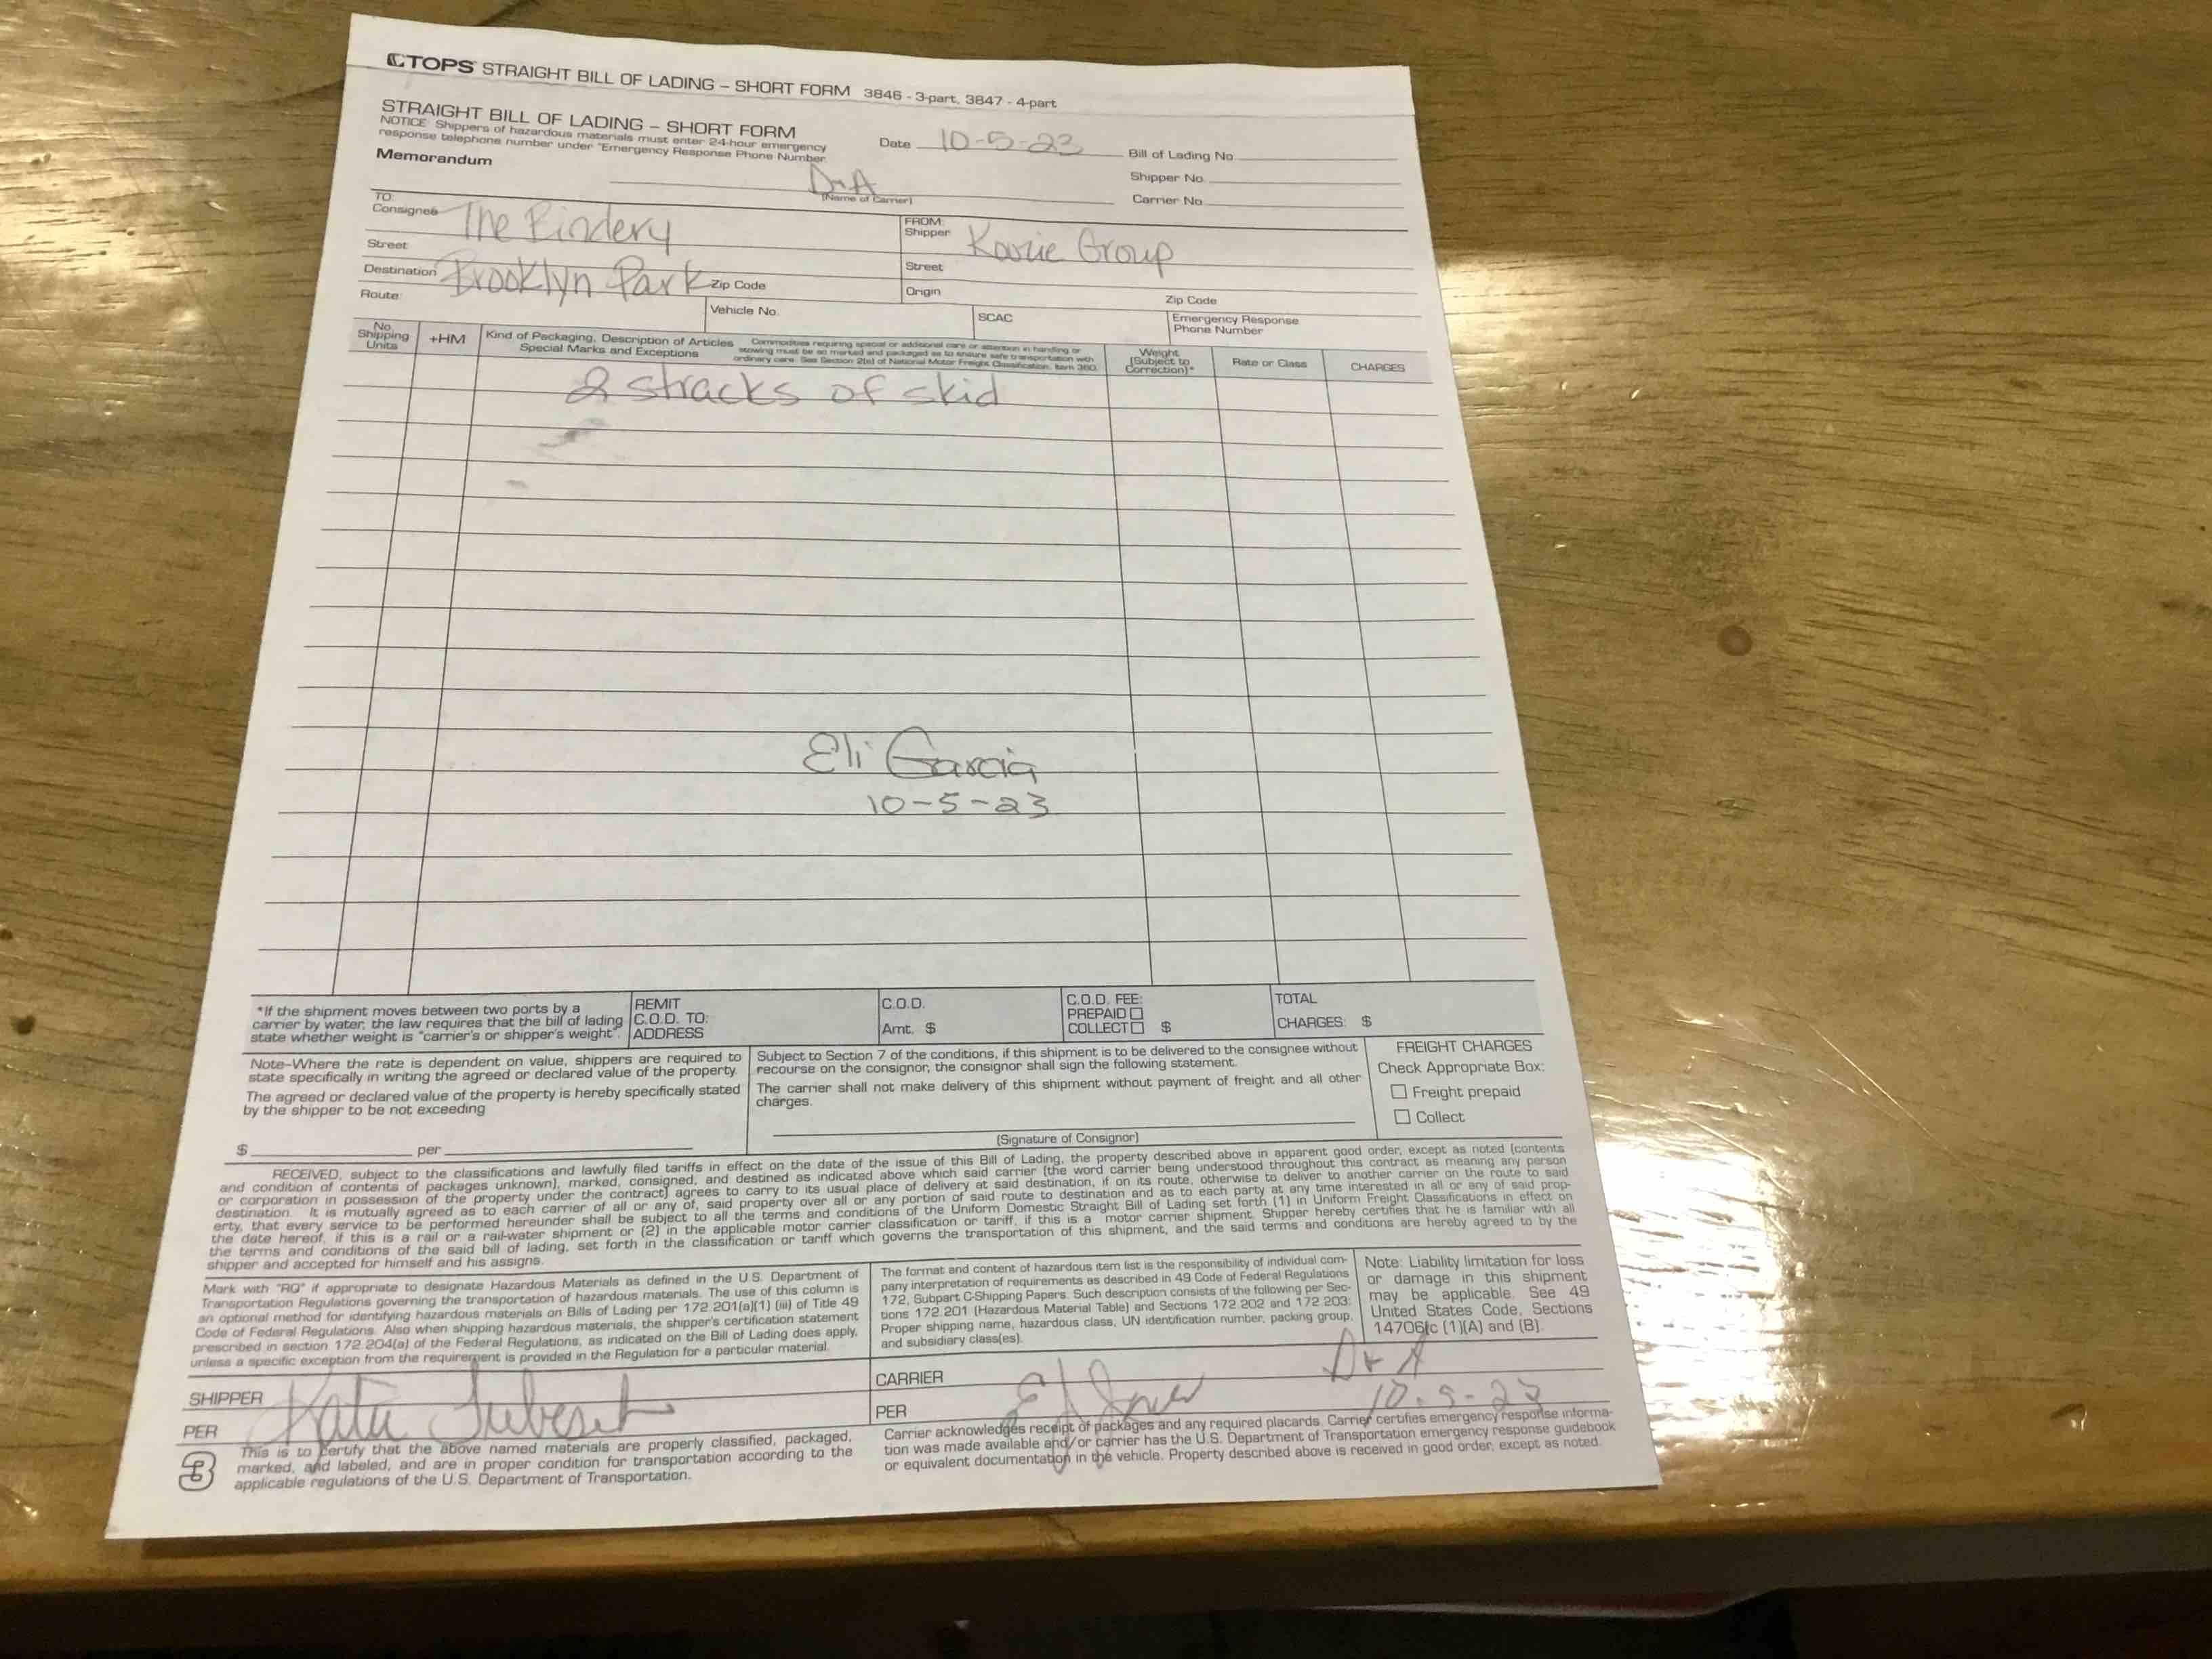 TOPS STRAIGHT BILL OF LADING – SHORT FORM 3846 - 3-part, 3847 - 4-part
STRAIGHT BILL OF LADING – SHORT FORM
NOTICE: Shippers of hazardous materials must enter 24-hour emergency
response telephone number under "Emergency Response Phone Number.
Date 10-5-23
Bill of Lading No.
Memorandum
Shipper No.
D+A
(Name of Carrier)
Carrier No.
TO:
Consignee The Bindery
FROM:
Shipper Group
Street
Street
Destination Brooklyn Park Zip Code
Origin Zip Code
Route:
Vehicle No.
SCAC
Emergency Response
Phone Number
No.
Shipping
Units
+HM
Kind of Packaging, Description of Articles
Special Marks and Exceptions
Commodities requiring special or additional care or attention in handling or
stowing must be so marked and packaged as to ensure safe transportation with
ordinary care. See Section 2(e) of National Motor Freight Classification, Item 360.
Weight
(Subject to
Correction)*
Rate or Class
CHARGES
2 stracks of skid
Eli Garcia
10-5-23
*If the shipment moves between two ports by a
carrier by water, the law requires that the bill of lading
state whether weight is "carrier's or shipper's weight".
REMIT
C.O.D. TO:
ADDRESS
C.O.D.
Amt. $
C.O.D. FEE:
PREPAID
COLLECT $
TOTAL
CHARGES: $
Note–Where the rate is dependent on value, shippers are required to
state specifically in writing the agreed or declared value of the property.
The agreed or declared value of the property is hereby specifically stated
by the shipper to be not exceeding
$ per
Subject to Section 7 of the conditions, if this shipment is to be delivered to the consignee without
recourse on the consignor, the consignor shall sign the following statement.
The carrier shall not make delivery of this shipment without payment of freight and all other
charges.
(Signature of Consignor)
FREIGHT CHARGES
Check Appropriate Box:
Freight prepaid
Collect
RECEIVED, subject to the classifications and lawfully filed tariffs in effect on the date of the issue of this Bill of Lading, the property described above in apparent good order, except as noted (contents
and condition of contents of packages unknown), marked, consigned, and destined as indicated above which said carrier (the word carrier being understood throughout this contract as meaning any person
or corporation in possession of the property under the contract) agrees to carry to its usual place of delivery at said destination, if on its route, otherwise to deliver to another carrier on the route to said
destination. It is mutually agreed as to each carrier of all or any of, said property over all or any portion of said route to destination and as to each party at any time interested in all or any of said prop-
erty, that every service to be performed hereunder shall be subject to all the terms and conditions of the Uniform Domestic Straight Bill of Lading set forth (1) in Uniform Freight Classifications in effect on
the date hereof, if this is a rail or a rail-water shipment or (2) in the applicable motor carrier classification or tariff, if this is a motor carrier shipment. Shipper hereby certifies that he is familiar with all
the terms and conditions of the said bill of lading, set forth in the classification or tariff which governs the transportation of this shipment, and the said terms and conditions are hereby agreed to by the
shipper and accepted for himself and his assigns.
Mark with "RQ" if appropriate to designate Hazardous Materials as defined in the U.S. Department of
Transportation Regulations governing the transportation of hazardous materials. The use of this column is
an optional method for identifying hazardous materials on Bills of Lading per 172.201(a)(1) (iii) of Title 49
Code of Federal Regulations. Also when shipping hazardous materials, the shipper's certification statement
prescribed in section 172.204(a) of the Federal Regulations, as indicated on the Bill of Lading does apply,
unless a specific exception from the requirement is provided in the Regulation for a particular material.
The format and content of hazardous item list is the responsibility of individual com-
pany interpretation of requirements as described in 49 Code of Federal Regulations
172, Subpart C-Shipping Papers. Such description consists of the following per Sec-
tions 172.201 (Hazardous Material Table) and Sections 172.202 and 172.203:
Proper shipping name, hazardous class, UN identification number, packing group,
and subsidiary class(es).
Note: Liability limitation for loss
or damage in this shipment
may be applicable. See 49
United States Code, Sections
14706(c (1)(A) and (B).
SHIPPER
PER
CARRIER D+A
PER 10-5-23
3
This is to certify that the above named materials are properly classified, packaged,
marked, and labeled, and are in proper condition for transportation according to the
applicable regulations of the U.S. Department of Transportation.
Carrier acknowledges receipt of packages and any required placards. Carrier certifies emergency response informa-
tion was made available and/or carrier has the U.S. Department of Transportation emergency response guidebook
or equivalent documentation in the vehicle. Property described above is received in good order, except as noted.